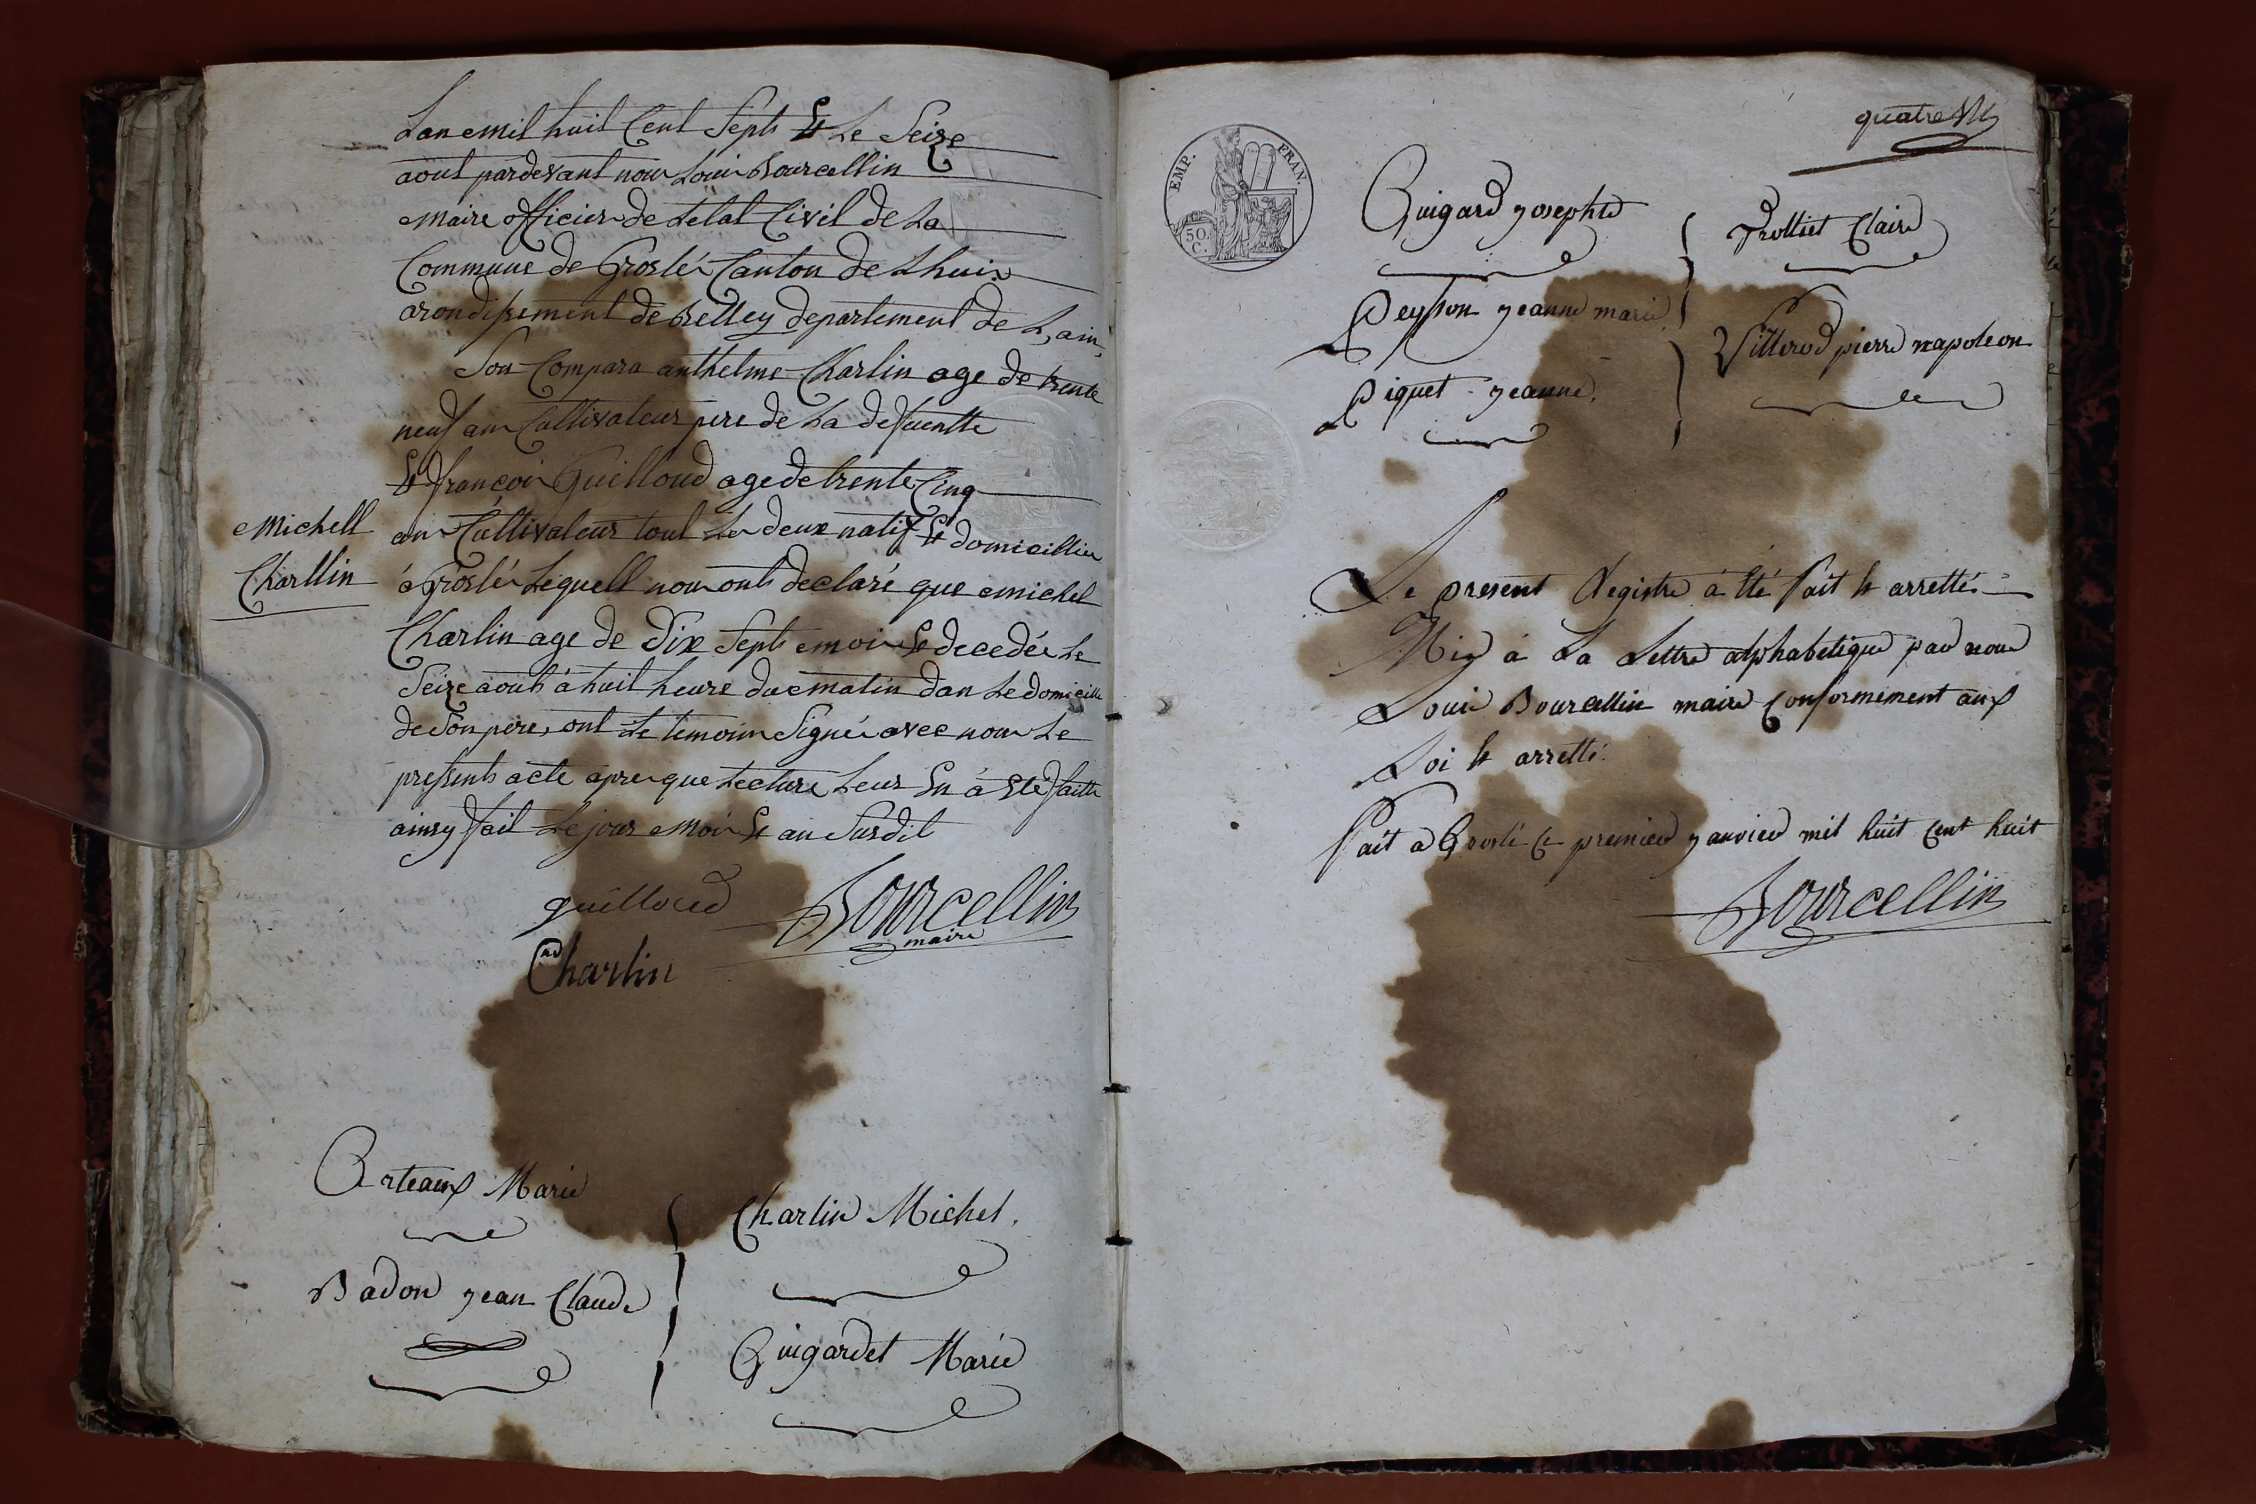 Lan mil huit Cent Sept & Le Seize
aout pardevant nous Louis Bourcellin
maire officier de Letat Civil de La
Commune de Groslé Canton de Lhuis
arondissement de Belley departement de L'ain,
Son Compara anthelme Charlin age de trente
neuf ans Cultivateur pere de La defuentte
& françois Guilloud age de trente Cinq
ans Cultivateur tout Les deux natif & domicillies
á Groslé Lequell nous onts declaré que michel
Michell
Charllin
Charlin age de Dix Septs mois & decedée Le
Seize aouts á huit heure du matin dans Le domicille
de Son pere, ont Le temoins Signé avec nous Le
pressents acte apres que Lecture Leur En á Eté faitte
ainsy fait Le jour mois & an Susdit
guilloud
Bourcellin
maire
Charlin
Arteaux Marie
Charlin Michel.
Badon jean Claude
Guigardet Marie
EMP. FRAN.
50.
C.
Guigard josephte
Trolliet Claire
Peysson jeanne marie
Villerod pierre napoleon
Piquet jeanne.
Le present Registre á Eté fait & arretté
Mis á La Lettre alphabetique par nous
Louis Bourcellin maire Conformement aux
Loi & arretté.
Fait a Groslé Ce premier janvier mil huit Cent huit
Bourcellin